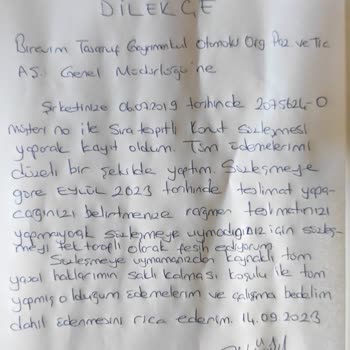 DİLEKÇE
Birevim Tasarruf Gayrimenkul Otomotiv Org Paz ve Tic
AŞ. Genel Müdürlüğü'ne
Şirketinize 06.07.2019 tarihinde 2075624-0
müşteri no ile Sıra tespitli Konut Sözleşmesi
yaparak kayıt oldum. Tüm ödemelerimi
düzenli bir şekilde yaptım. Sözleşmeye
göre EYLÜL 2023 tarihinde teslimat yapa-
cağınızı belirtmenize rağmen teslimatınızı
yapmayarak sözleşmeye uymadığınız için sözleş-
meyi tek taraflı olarak fesih ediyorum
Sözleşmeye uymamanızdan kaynaklı tüm
yasal haklarımın saklı kalması koşulu ile tüm
yapmış olduğum ödemelerim ve çalışma bedelim
dahil ödenmesini rica ederim. 14.09.2023